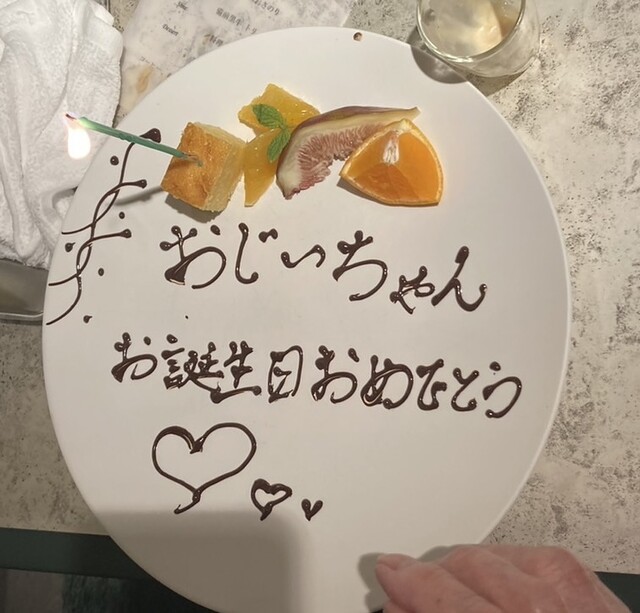 おじいちゃん
お誕生日おめでとう